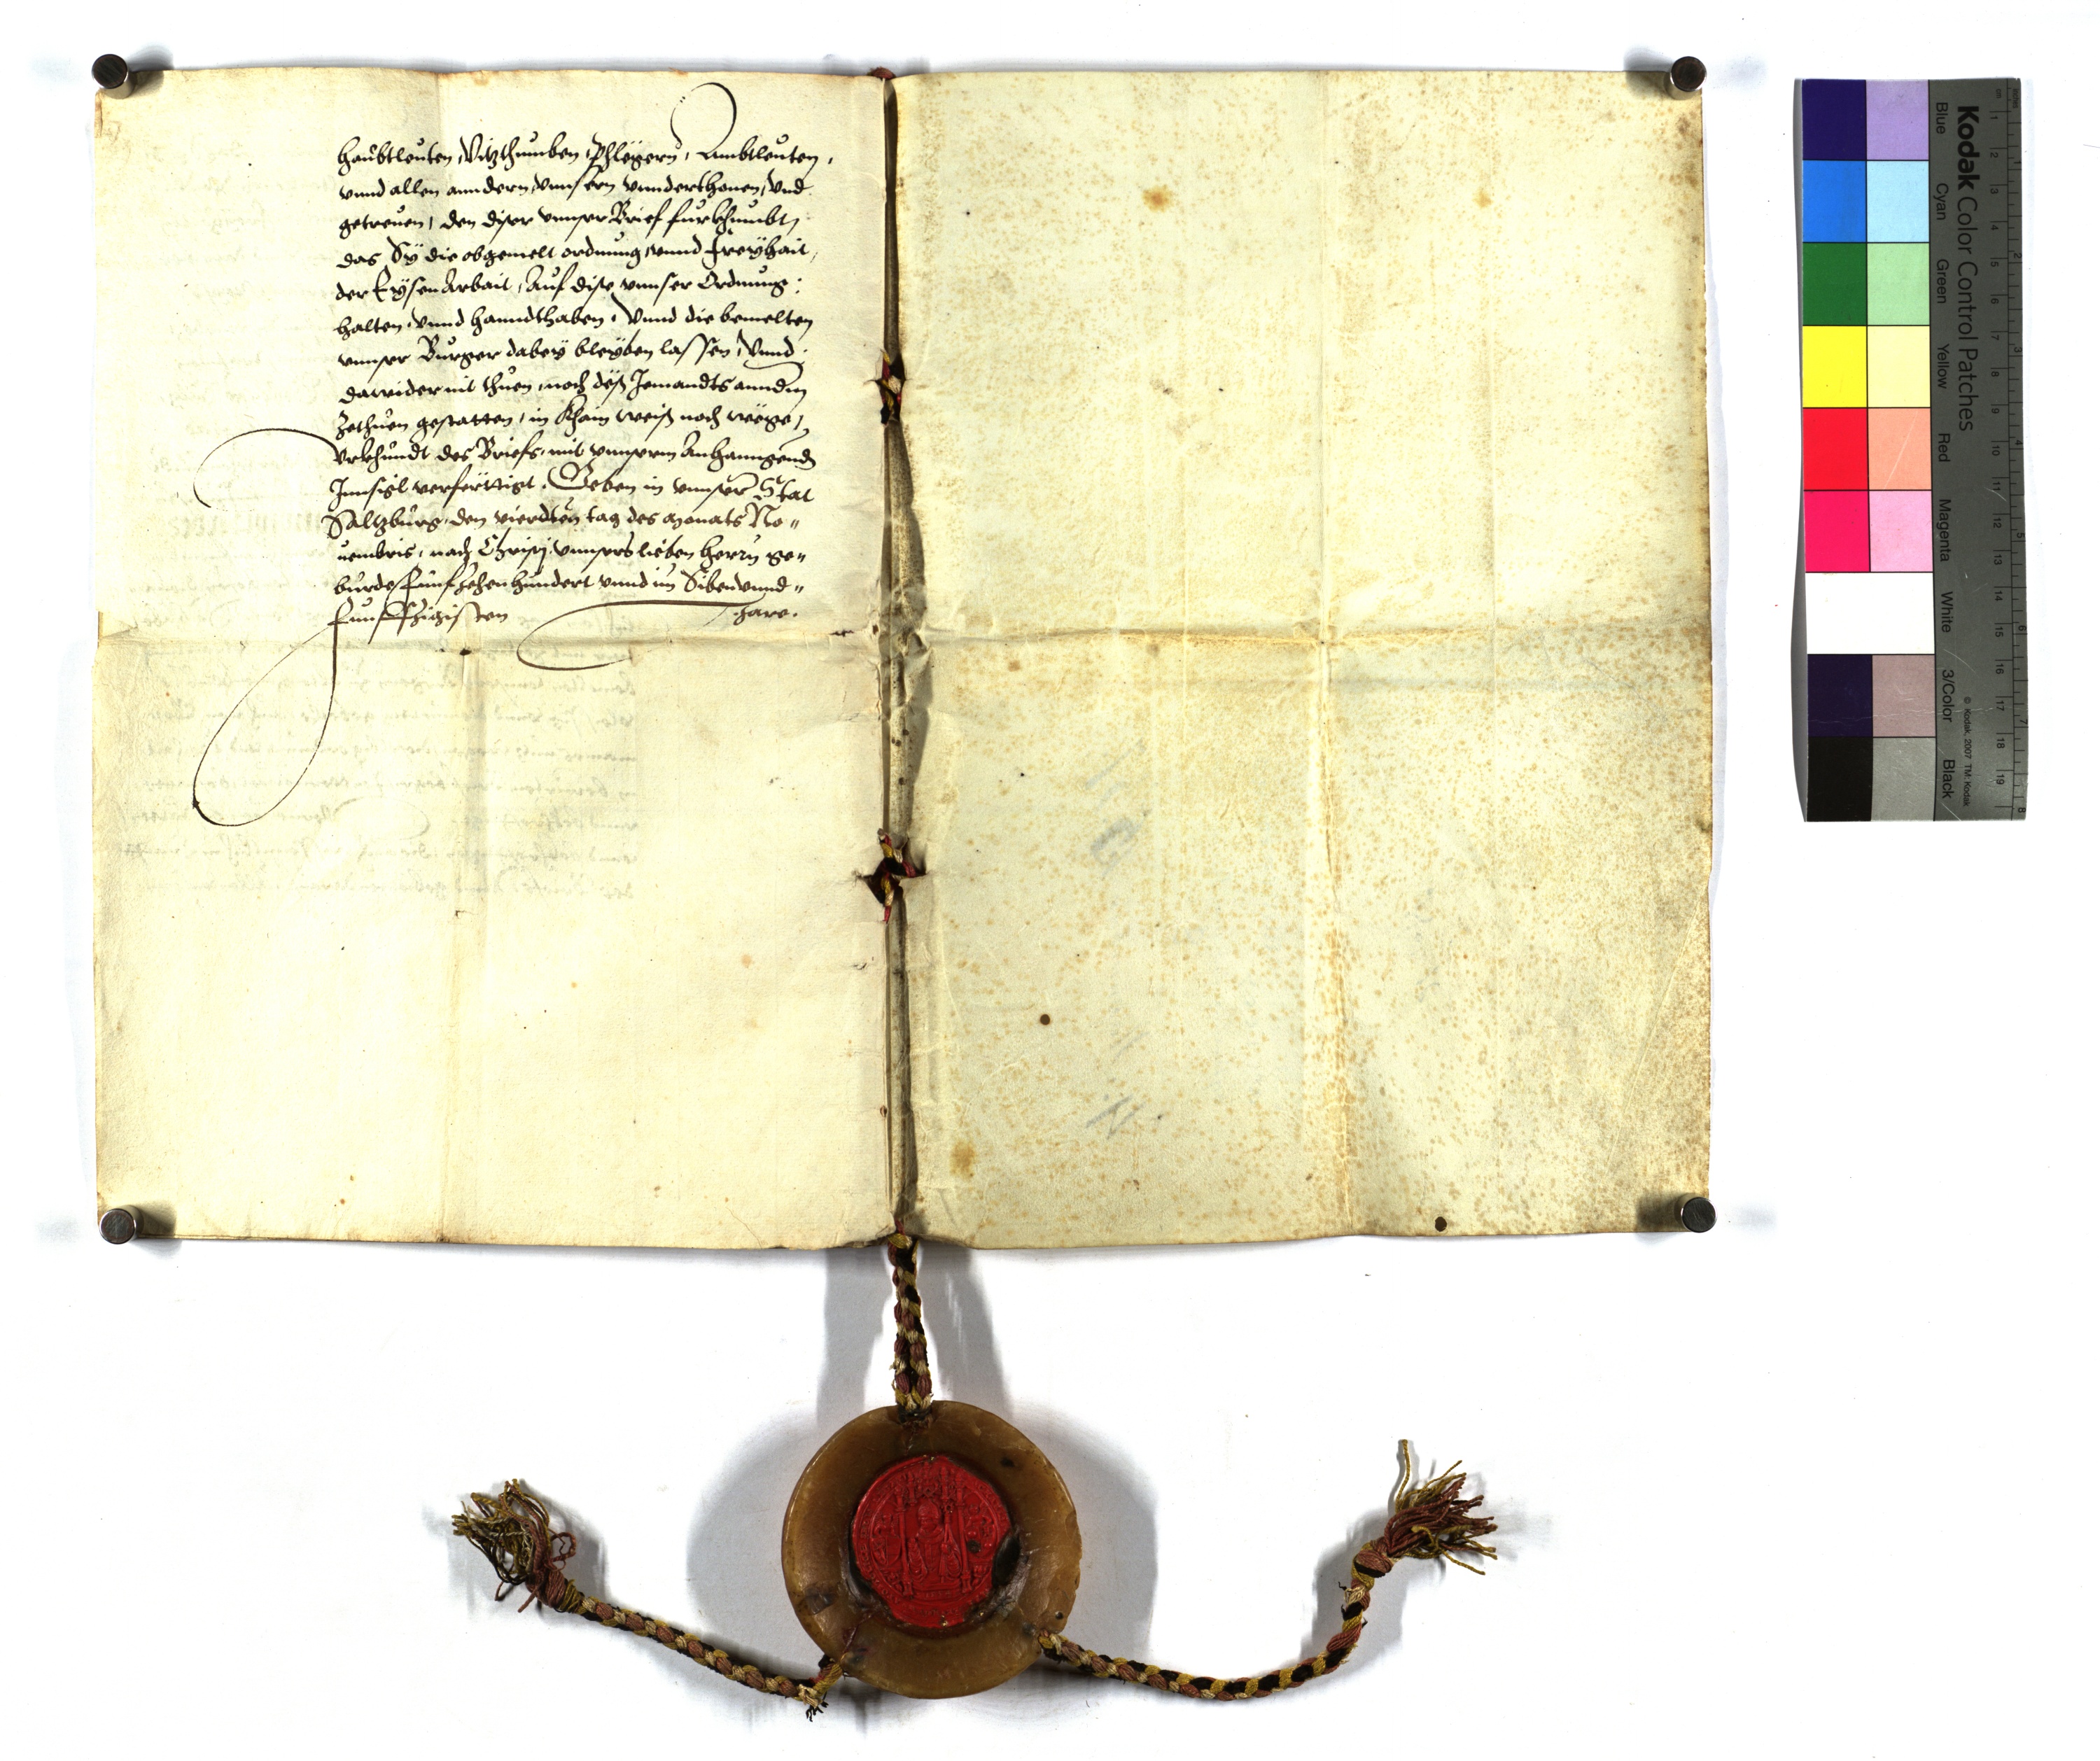 haubtleuten, Vitzthumben, Phlegern, Ambtleuten,
vnnd allen anndern, vnnsern vnnderthonen, vnd
getreuen, den diser vnnser Brief furkhumbt,
das Sÿ die obgemelt ordnung, vnnd Freÿhait,
der Eÿsen Arbait, Auf dise vnnser Ordnung,
halten, vnnd hanndthaben, Vnnd die bemelten
vnnser Burger dabeÿ bleÿben lassen, Vnnd
dawider nit thuen, noch deß Jemandts anndern
Zethuen gestatten, in khain weiß noch weege,
Vrkhundt des Briefs, mit vnnserm Anhanngendn
Innsigl verferttigt. Geben in vnnser Stat
Saltzburg, den vierdten tag des monats No-
uembris, nach Christj, vnnsers lieben herrn ge-
burde, Funfzehenhundert vnnd im Sibenvnnd-
funfftzigisten Jare.
Kodak Color Control Patches
Blue Cyan Green Yellow Red Magenta White 3/Color Black
© Kodak, 2007 TM: Kodak
cm 1 2 3 4 5 6 7 8 9 10 11 12 13 14 15 16 17 18 19
inches 1 2 3 4 5 6 7 8